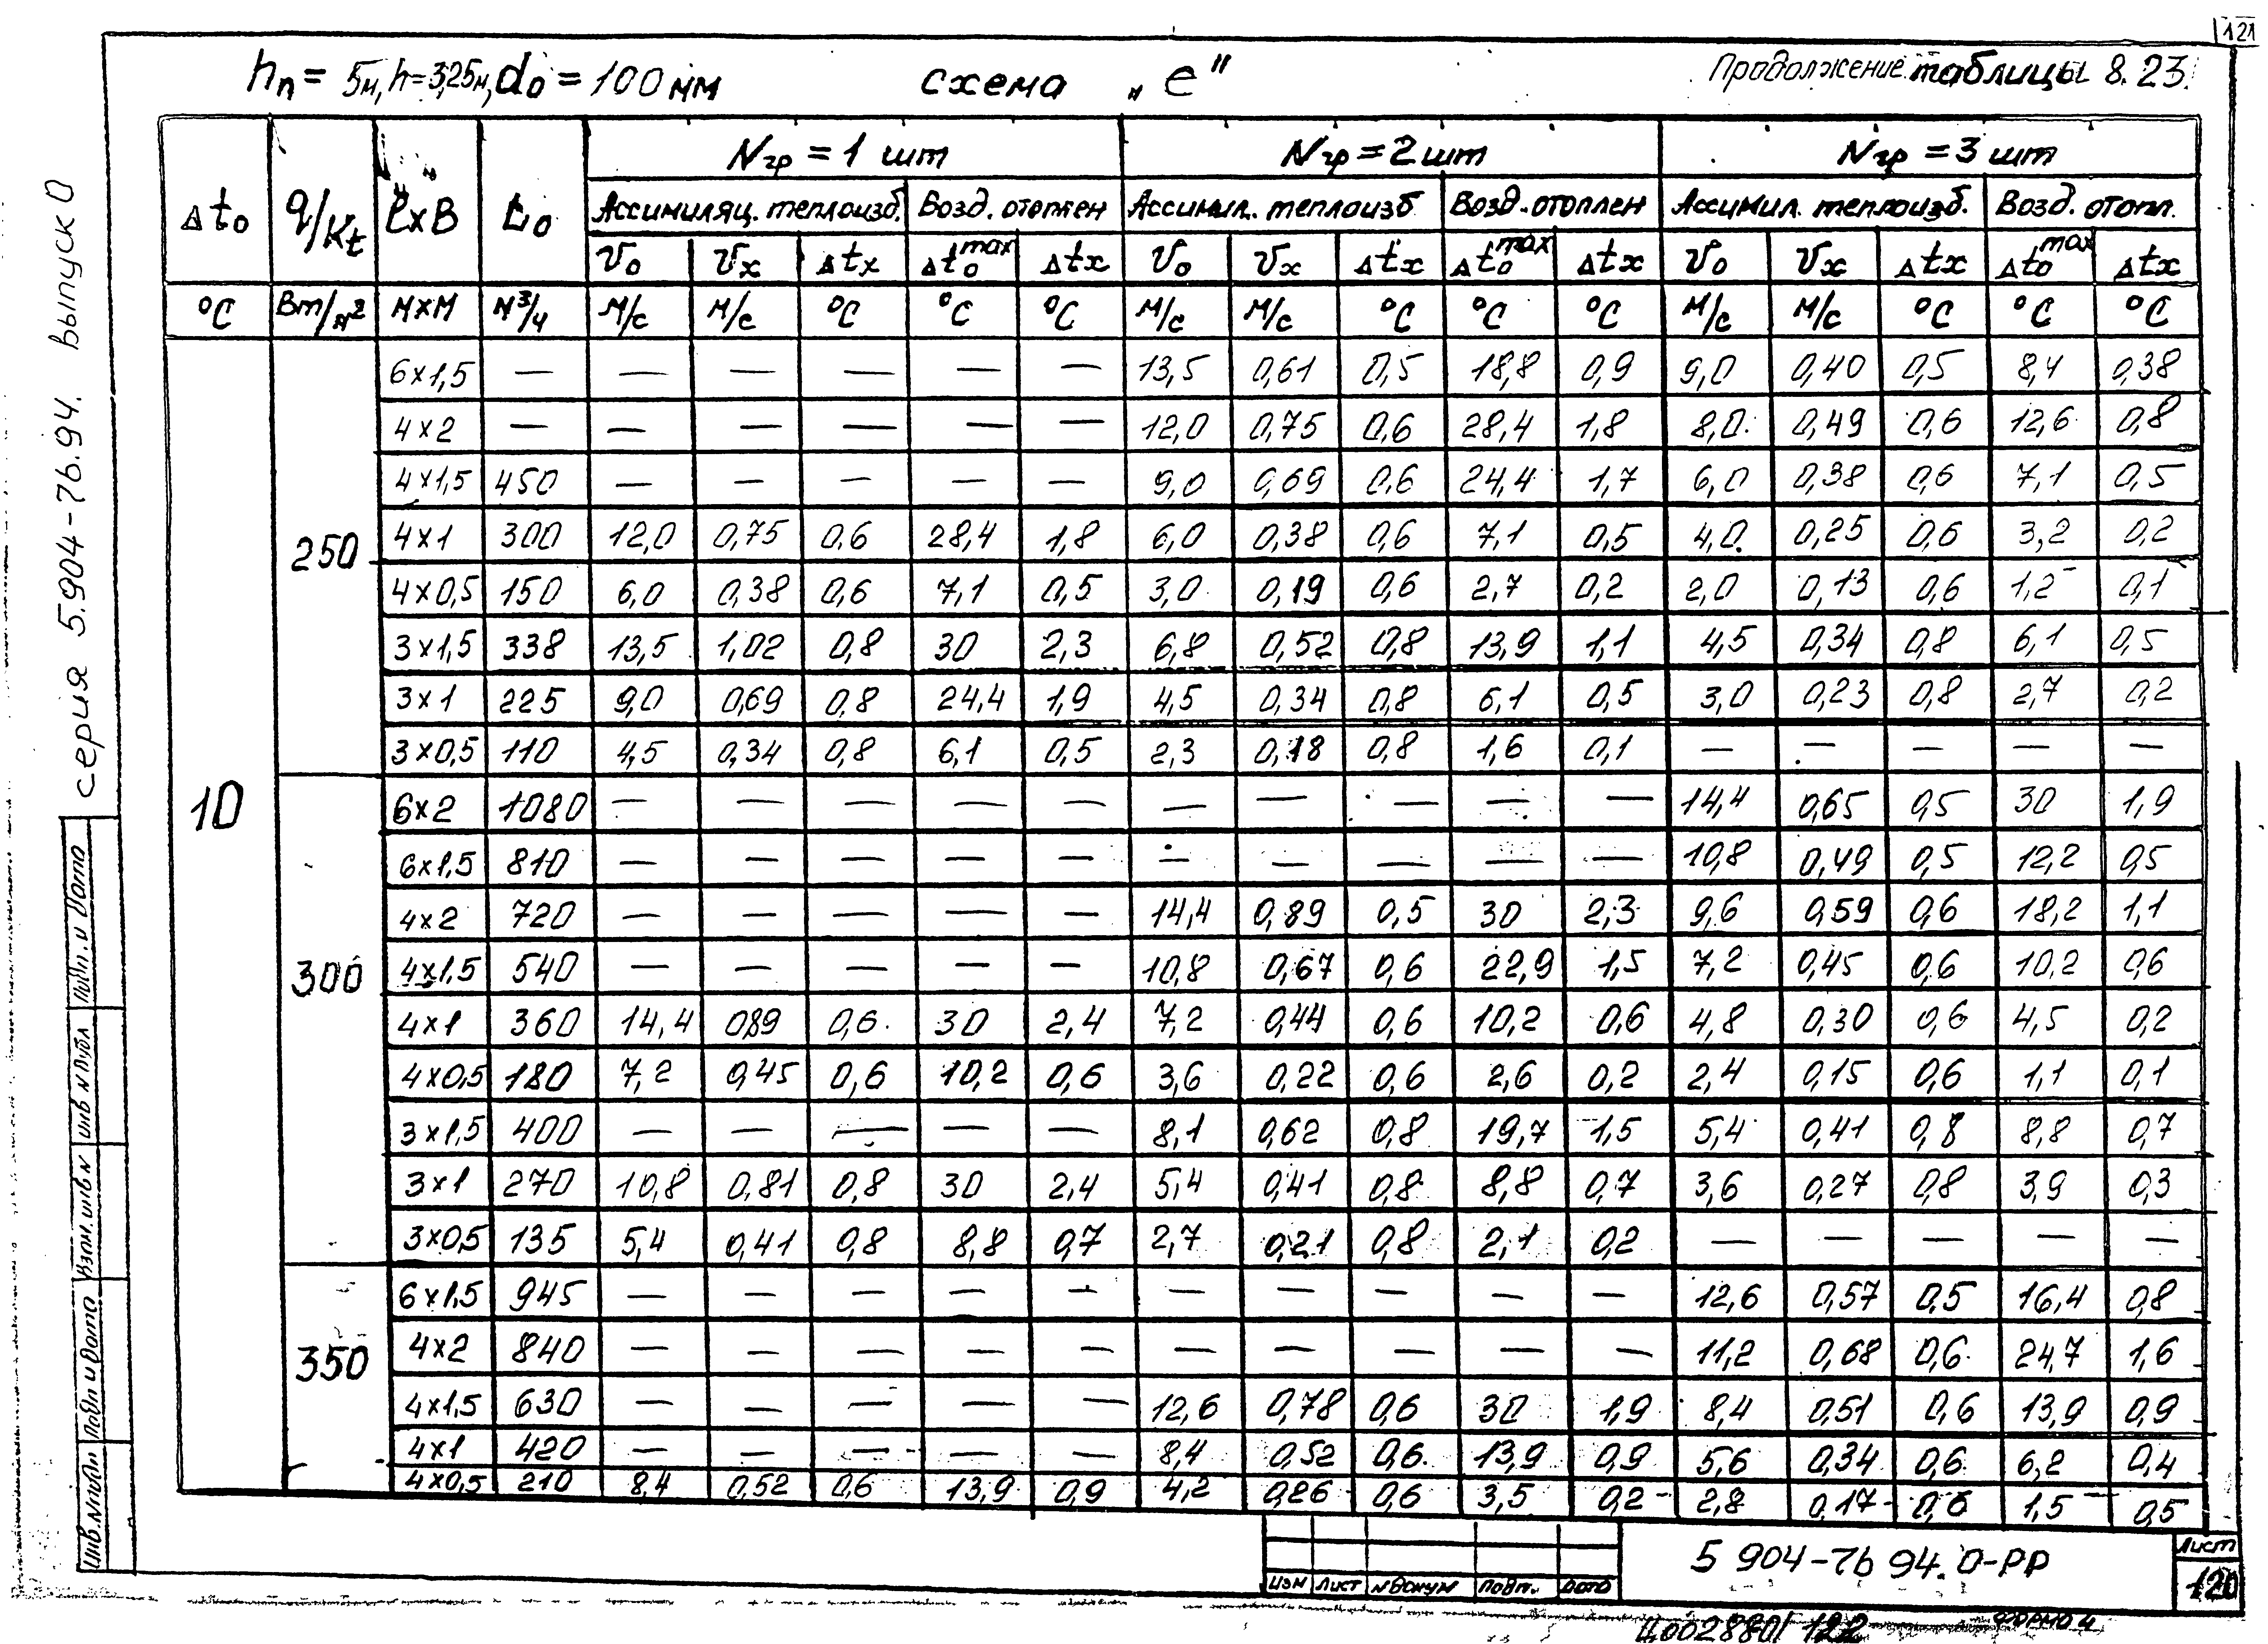 121
hп = 5м, h=3,25м, do = 100 мм схема „е" Продолжение таблицы 8.23.
Δto q/Kt ℓxB Lo Nгр = 1 шт Nгр = 2 шт Nгр = 3 шт
Ассимиляц. теплоизб. Возд. отоплен Ассимил. теплоизб Возд. отоплен Ассимил. теплоизб. Возд. отопл.
Vo Vx Δtx Δto max Δtx Vo Vx Δtx Δto max Δtx Vo Vx Δtx Δto max Δtx
°C Вт/м² МхМ М³/ч М/с М/с °C °C °C М/с М/с °C °C °C М/с М/с °C °C °C
6x1,5 — — — — — — 13,5 0,61 0,5 18,8 0,9 9,0 0,40 0,5 8,4 0,38
4x2 — — — — — — 12,0 0,75 0,6 28,4 1,8 8,0 0,49 0,6 12,6 0,8
4x1,5 450 — — — — — 9,0 0,69 0,6 24,4 1,7 6,0 0,38 0,6 7,1 0,5
250 4x1 300 12,0 0,75 0,6 28,4 1,8 6,0 0,38 0,6 7,1 0,5 4,0 0,25 0,6 3,2 0,2
4x0,5 150 6,0 0,38 0,6 7,1 0,5 3,0 0,19 0,6 2,7 0,2 2,0 0,13 0,6 1,2 0,1
3x1,5 338 13,5 1,02 0,8 30 2,3 6,8 0,52 0,8 13,9 1,1 4,5 0,34 0,8 6,1 0,5
3x1 225 9,0 0,69 0,8 24,4 1,9 4,5 0,34 0,8 6,1 0,5 3,0 0,23 0,8 2,7 0,2
3x0,5 110 4,5 0,34 0,8 6,1 0,5 2,3 0,18 0,8 1,6 0,1 — — — — —
10 6x2 1080 — — — — — — — — — — 14,4 0,65 0,5 30 1,9
6x1,5 810 — — — — — — — — — — 10,8 0,49 0,5 12,2 0,5
4x2 720 — — — — — 14,4 0,89 0,5 30 2,3 9,6 0,59 0,6 18,2 1,1
300 4x1,5 540 — — — — — 10,8 0,67 0,6 22,9 1,5 7,2 0,45 0,6 10,2 0,6
4x1 360 14,4 0,89 0,6 30 2,4 7,2 0,44 0,6 10,2 0,6 4,8 0,30 0,6 4,5 0,2
4x0,5 180 7,2 0,45 0,6 10,2 0,6 3,6 0,22 0,6 2,6 0,2 2,4 0,15 0,6 1,1 0,1
3x1,5 400 — — — — — 8,1 0,62 0,8 19,7 1,5 5,4 0,41 0,8 8,8 0,7
3x1 270 10,8 0,81 0,8 30 2,4 5,4 0,41 0,8 8,8 0,7 3,6 0,27 0,8 3,9 0,3
3x0,5 135 5,4 0,41 0,8 8,8 0,7 2,7 0,21 0,8 2,1 0,2 — — — — —
6x1,5 945 — — — — — — — — — — 12,6 0,57 0,5 16,4 0,8
350 4x2 840 — — — — — — — — — — 11,2 0,68 0,6 24,7 1,6
4x1,5 630 — — — — — 12,6 0,78 0,6 30 1,9 8,4 0,51 0,6 13,9 0,9
4x1 420 — — — — — 8,4 0,52 0,6 13,9 0,9 5,6 0,34 0,6 6,2 0,4
4x0,5 210 8,4 0,52 0,6 13,9 0,9 4,2 0,26 0,6 3,5 0,2 2,8 0,17 0,6 1,5 0,5
серия 5.904-76.94. выпуск 0
Инв. № подл Подп и Дата Взам. инв № инв № дубл Подп. и Дата
Изм Лист № докум Подп. Дата
5 904-76 94. 0-РР
Лист
120
4002880/ 122
Формат